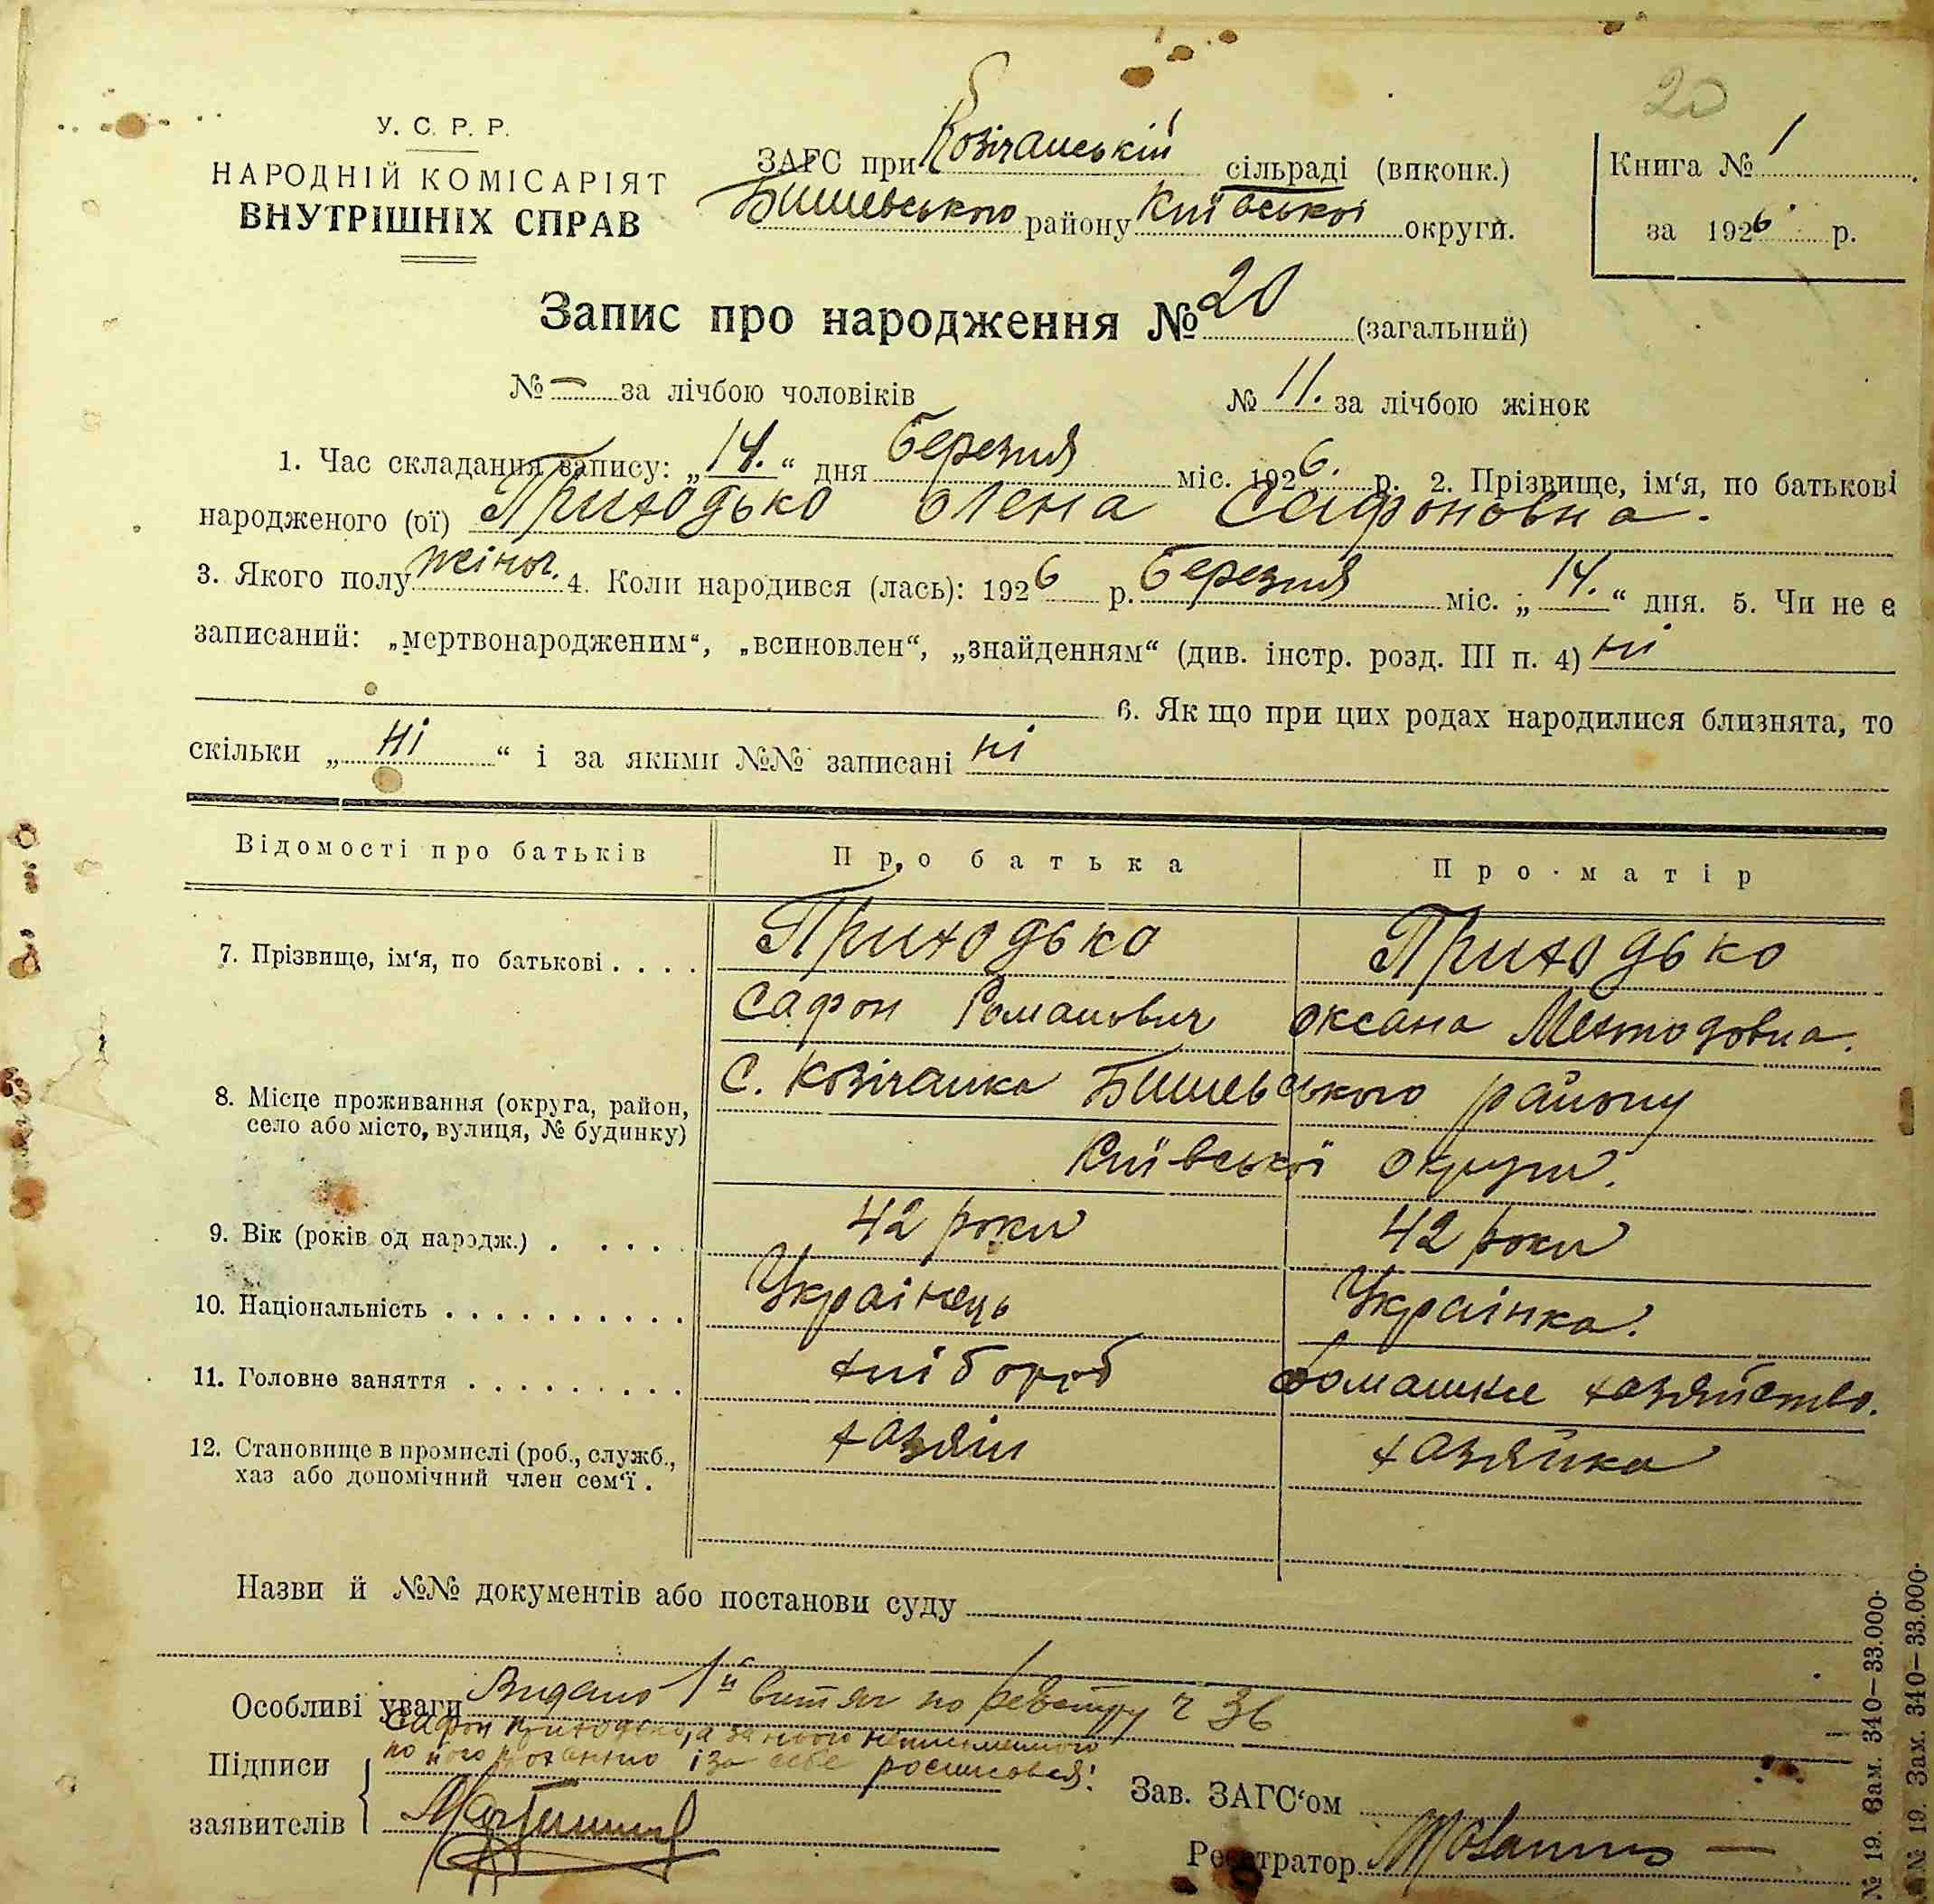 20
У. С. Р. Р.
НАРОДНІЙ КОМІСАРІЯТ
ВНУТРІШНІХ СПРАВ
ЗАГС при Козічанській сільраді (виконк.)
Бишевського району Київської округи.
Книга № 1
за 1926 р.
Запис про народження № 20 (загальний)
№ — за лічбою чоловіків № 11. за лічбою жінок
1. Час складання запису: „14.“ дня березня міс. 1926. р. 2. Прізвище, ім‘я, по батькові
народженого (ої) Приходько Олена Сафоновна.
3. Якого полу жіноч. 4. Коли народився (лась): 1926 р. березня міс. „14.“ дня. 5. Чи не є
записаний: „мертвонародженим“, „всиновлен“, „знайденням“ (див. інстр. розд. III п. 4) ні
6. Як що при цих родах народилися близнята, то
скільки „ ні “ і за якими №№ записані ні
Відомості про батьків Про батька Про матір
7. Прізвище, ім‘я, по батькові . . . . Приходько Приходько
Сафон Романович Оксана Мехтодовна.
8. Місце проживання (округа, район, с. Козічанка Бишевського району
село або місто, вулиця, № будинку)
Київської округи.
9. Вік (років од народж.) . . . . . 42 роки 42 роки
10. Національність . . . . . . . . . . Українець Українка.
11. Головне заняття . . . . . . . . . хлібороб домашнє хазяйство.
12. Становище в промислі (роб., служб., хазяїн хазяйка
хаз або допомічний член сем‘ї .
Назви й №№ документів або постанови суду
Особливі уваги Видано 1й витяг по реєстру ч 36
Сафон Приходько, а за нього неписьменного
Підписи по його проханню і за себе росписався:
заявителів
Зав. ЗАГС‘ом
Реєстратор
№ 19. Зам. 340—33.000.
№ 19. Зам. 340—33.000.